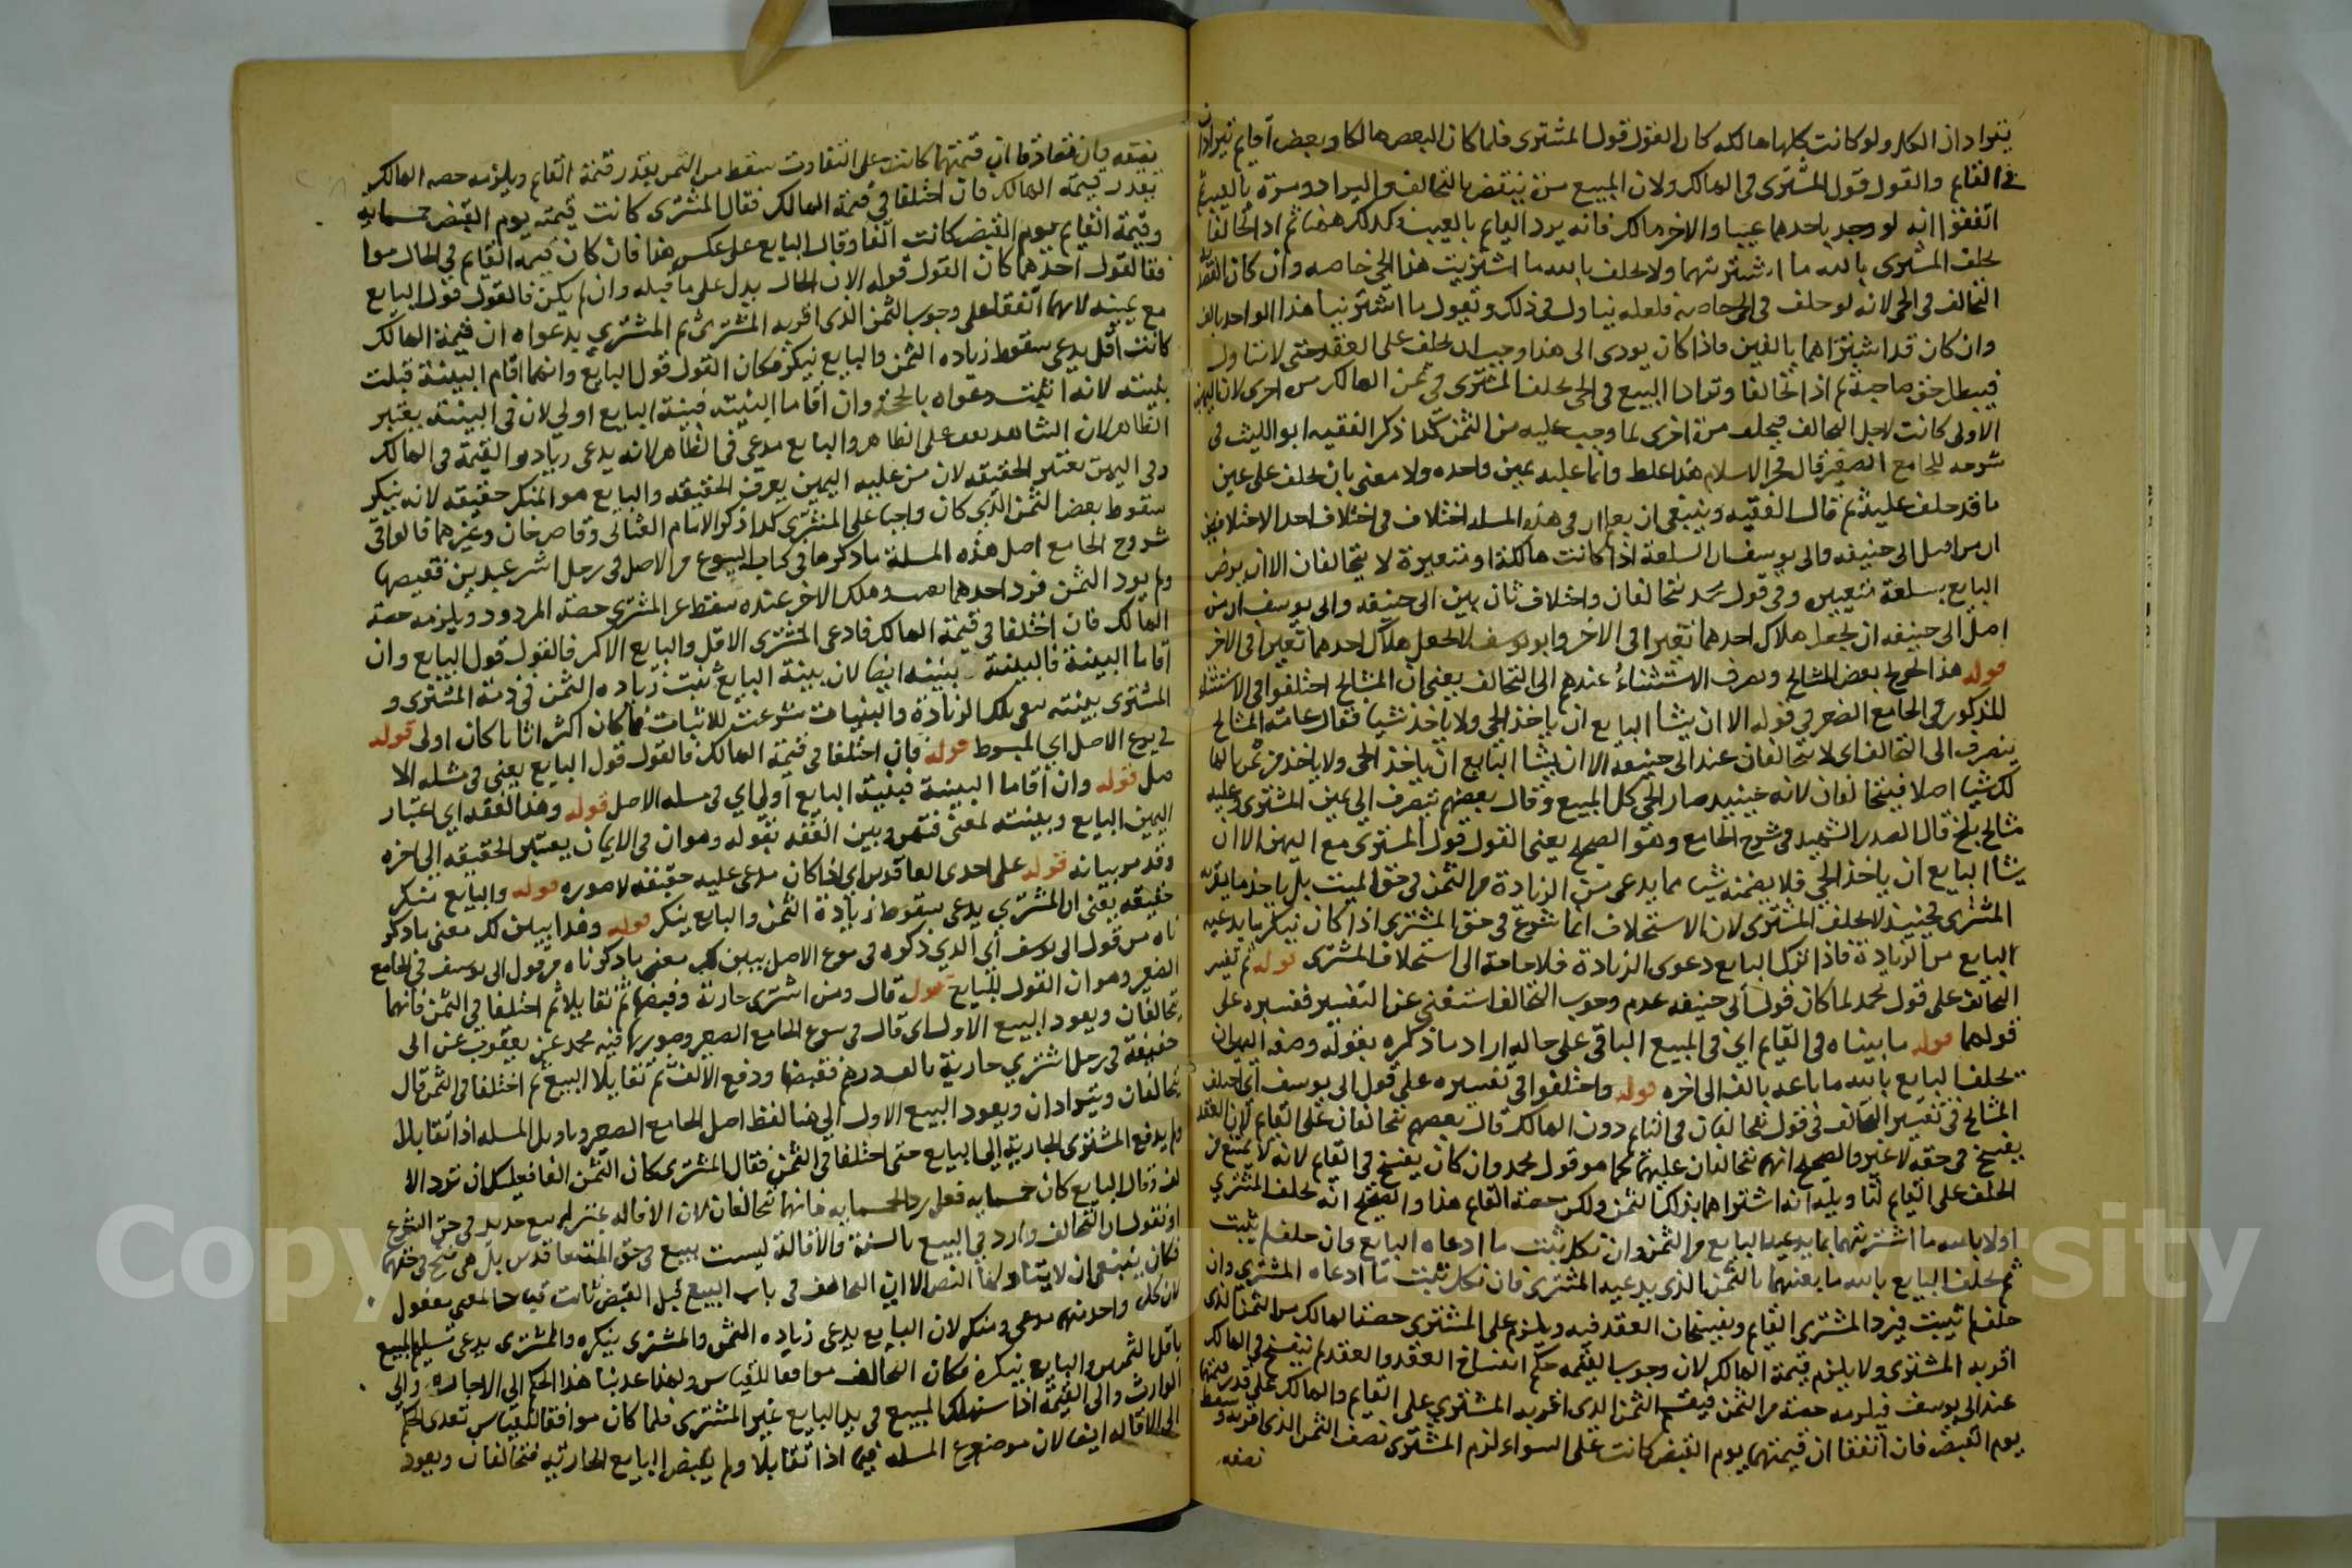 يترادان الكل ولو كانت كلها هالكه كان القول قول المشترى فلما كان البعض هالكا وبعض قايم يترادان
فى القايم والقول قول المشترى فى الهالك ولان المبيع مرة ينتقض بالتحالف والتراد ومرة بالعيب ثم
اتفقوا انه لو وجد باحدهما عيبا والاخر هالك فانه يرد القايم بالعيب وكذلك هذا ثم اذا تحالفا
يحلف المشترى بالله ما اشتريتهما ولا يحلف بالله ما اشتريت هذا الحى خاصه وان كان
التحالف فى الحى لانه لو حلف فى الحى خاصة فلعله يتاول فى ذلك وتقول ما اشتريت هذا الواحد بالف
وان كان قد اشتراهما بالفين فاذا كان يودى الى هذا وجب ان يحلف على العقد حتى لا يتاول
فيبطل حق صاحبه ثم اذا تحالفا وترادا البيع فى الحى يحلف المشترى فى ثمن الهالك مرة اخرى لان اليمين
الاولى كانت لاجل التحالف فيحلف مرة اخرى لما وجب عليه من الثمن كذا ذكر الفقيه ابو الليث فى
شرحه للجامع الصغير قال فخر الاسلام هذا غلط وانما عليه يمين واحده ولا معنى بان يحلف على عين
ما قد حلف عليه ثم قال الفقيه وينبغى ان يعلم ان فى هذه المسله اختلاف فى اختلاف احد الاختلافين
ان من اصل ابى حنيفه وابى يوسف ان السلعة اذا كانت هالكة او متغيرة لا يتحالفان الا ان يرضى
البايع بسلعة متغيره وفى قول محمد يتحالفان واختلاف ثان بين ابى حنيفه وابى يوسف ان من
اصل ابى حنيفه ان يجعل هلاك احدهما تغيرا فى الاخر وابو يوسف لا يجعل هلاك احدهما تغيرا فى الاخر
قوله هذا تخريج بعض المشايخ وصرف الاستثناء عندهم الى التحالف يعنى ان المشايخ اختلفوا فى الاستثناء
المذكور فى الجامع الصغير فى قوله الا ان يشا البايع ان ياخذ الحى ولا ياخذ شيا فقال عامة المشايخ
ينصرف الى التحالف اى لا يتحالفان عند ابى حنيفه الا ان يشا البايع ان ياخذ الحى ولا ياخذ من ثمن الهالك
شيا اصلا فيتحالفان لانه حينيد صار الحى كل المبيع وقال بعضهم ينصرف الى يمين المشترى وعليه
مشايخ بلخ قال الصدر الشهيد فى شرح الجامع وهو الصحيح يعنى القول قول المشترى مع اليمين الا ان
يشا البايع ان ياخذ الحى فلا يضمنه شيا مما يدعى من الزيادة من الثمن فى حق الميت بل ياخذ ما يقربه
المشترى فحينيذ لا يحلف المشترى لان الاستحلاف انما شرع فى حق المشترى اذا كان ينكر ما يدعيه
البايع من الزيادة فاذا ترك البايع دعوى الزيادة فلا حاجة الى استحلاف المشترى قوله ثم تفسير
التحالف على قول محمد لما كان قول ابى حنيفه عدم وجوب التحالف استغنى عن التفسير ففسره على
قولهما قوله ما بيناه فى القايم اى فى المبيع الباقى على حاله اراد ما ذكره بقوله وصفه اليمين ان
يحلف البايع بالله ما باعه بالف الى اخره قوله واختلفوا فى تفسيره على قول ابى يوسف اى اختلف
المشايخ فى تفسير التحالف فى قول يتحالفان فى القايم دون الهالك قال بعضهم يتحالفان على القايم لان العقد
يفسخ فى حقه لا غير والصحيح انهما يتحالفان عليهما كما هو قول محمد وان كان يفسخ فى القايم لانه لا يمتنع من
الحلف على القايم لتاويله انه اشتراهما بذلك الثمن ولكن حصة القايم هذا والصحيح انه يحلف المشترى
اولا بالله ما اشتريتهما بما يدعيه البايع من الثمن وان نكل يثبت ما ادعاه البايع وان حلف لم يثبت
ثم يحلف البايع بالله ما بعتهما بالثمن الذى يدعيه المشترى فان نكل يثبت ما ادعاه المشترى وان
حلف لم يثبت فيرد المشترى القايم ويفسخان العقد فيه ويلزم على المشترى حصة الهالك من الثمن الذى
اقر به المشترى ولا يلزم قيمة الهالك لان وجوب القيمه حكم انفساخ العقد والعقد لم ينفسخ فى الهالك
عند ابى يوسف فيلزمه حصته من الثمن فيقسم الثمن الذى اقر به المشترى على القايم والهالك على قدر قيمتهما
يوم القبض فان اتفقا ان قيمتهما يوم القبض كانت على السواء لزم المشترى نصف الثمن الذى اقر به وسقط
نصفه
نصفه وان تصادقا ان قيمتهما كانت على التفاوت سقط من الثمن بقدر قيمة القايم ويلزمه حصه الهالك
بقدر قيمة الهالك فان اختلفا فى قيمة الهالك فقال المشترى كانت قيمته يوم القبض خمسمايه
وقيمة القايم يوم القبض كانت الفا وقال البايع على عكس هذا فان كان قيمه القايم فى الحال موافقا
لقول احدهما كان القول قوله الان الحال يدل على ما قبله وان لم يكن فالقول قول البايع
مع يمينه لانهما اتفقا على وجوب الثمن الذى اقر به المشترى ثم المشترى بدعواه ان قيمة الهالك
كانت اقل يدعى سقوط زياده الثمن والبايع ينكر فكان القول قول البايع وايهما اقام البينة قبلت
بينته لانه اثبت دعواه بالحجة وان اقاما البينه فبينة البايع اولى لان فى البينة يعتبر
الظاهر لان الشاهد يقف على الظاهر والبايع مدعى فى الظاهر لانه يدعى زيادة القيمة فى الهالك
وفى اليمين تعتبر الحقيقه لان من عليه اليمين يعرف الحقيقه والبايع هو المنكر حقيقه لانه ينكر
سقوط بعض الثمن الذى كان واجبا على المشترى كذا ذكر الامام العتابى وقاضيخان وغيرهما قالوا فى
شروح الجامع اصل هذه المسلة ما ذكرها فى كتاب البيوع من الاصل فى رجل اشترى عبدين فقبضهما
ولم يرد الثمن فرد احدهما بعيب وهلك الاخر عنده سقط عن المشترى حصة المردود ويلزمه حصة
الهالك فان اختلفا فى قيمة الهالك فادعى المشترى الاقل والبايع الاكثر فالقول قول البايع وان
اقاما البينة فالبينة بينته ايضا لان بينة البايع تثبت زياده الثمن فى ذمة المشترى و
المشترى بينته تنفى تلك الزيادة والبينات شرعت للاثبات فما كان اكثر اثباتا كان اولى قوله
فى بيوع الاصل اى المبسوط قوله فان اختلفا فى قيمة الهالك فالقول قول البايع يعنى فى مسله الا
صل قوله وان اقاما البينة فبينة البايع اولى اى فى مسله الاصل قوله وهذا الفقه اى اعتبار
اليمين البايع وبينته لمعنى فقهى وبين الفقه بقوله وهو ان فى الايمان يعتبر الحقيقه الى اخره
وقد مر بيانه قوله على احدى العاقدين اى اذا كان مدعى عليه حقيقه لا صوره قوله والبايع منكر
حقيقه يعنى ان المشترى يدعى سقوط زيادة الثمن والبايع ينكر قوله وهذا يبين لك معنى ما ذكر
ناه من قول ابى يوسف اى الذى ذكره فى بيوع الاصل يبين لك معنى ما ذكرناه من قول ابى يوسف فى الجامع
الصغير وهو ان القول للبايع قوله قال ومن اشترى جارية وقبضها ثم تقايلا ثم اختلفا فى الثمن فانهما
يتحالفان ويعود البيع الاول اى قال فى بيوع الجامع الصغير وصورتها فيه محمد عن يعقوب عن ابى
حنيفة فى رجل اشترى جارية بالف درهم فقبضها ودفع الالف ثم تقايلا البيع ثم اختلفا فى الثمن قال
يتحالفان ويترادان ويعود البيع الاول الى هنا لفظ اصل الجامع الصغير وتاويل المسله اذا تقايلا
ولم يدفع المشترى الجارية الى البايع حتى اختلفا فى الثمن فقال المشترى كان الثمن الفا فعليك ان ترد الا
لف وقال البايع كان خمسمايه فعلى رد الخمسمايه فانهما يتحالفان لان الاقاله بمنزله بيع جديد فى حق الشرع
او نقول ان التحالف وارد فى البيع بالسنة والاقالة ليست ببيع فى حق المتعاقدين بل هى فسخ فى حقهما
فكان ينبغى ان لا يتناولها النص الا ان التحالف فى باب البيع قبل القبض ثابت قياسا لمعنى معقول
لان كل واحد منهما مدعى ومنكر لان البايع يدعى زياده الثمن والمشترى ينكره والمشترى يدعى تسليم المبيع
باقل الثمن والبايع ينكره فكان التحالف موافقا للقياس ولهذا عدينا هذا الحكم الى الاجارة والى
الوارث والى القيمة اذا استهلك المبيع فى يد البايع غير المشترى فلما كان موافقا للقياس تعدى الحكم
الى الاقاله ايضا لان موضوع المسله فيما اذا تقايلا ولم يقبض البايع الجارية فيتحالفان ويعود
Copyright © King Saud University